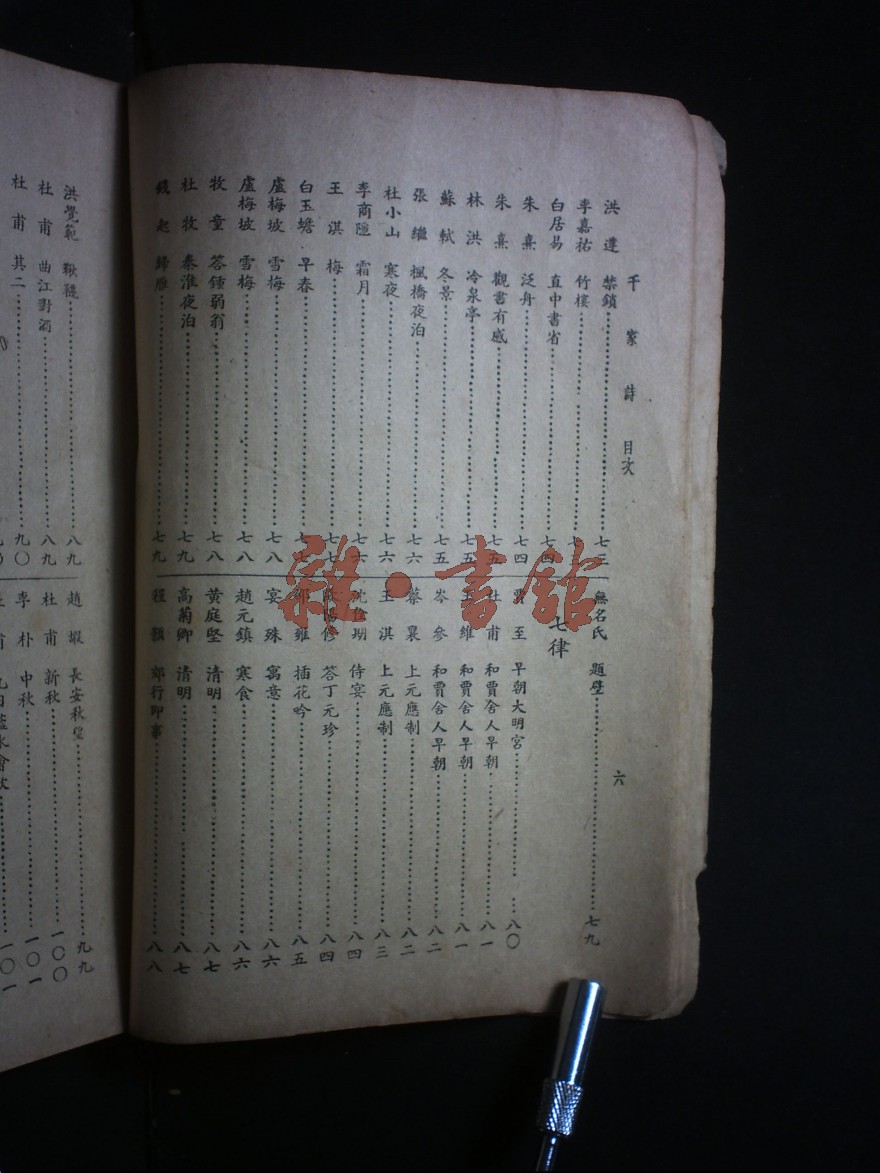 千家詩目次
六
洪遵 禁鎖 七三
李嘉祐 竹樓
白居易 直中書省 七四
朱熹 泛舟 七四
朱熹 觀書有感 七五
林洪 冷泉亭 七五
蘇軾 冬景 七五
張繼 楓橋夜泊 七六
杜小山 寒夜 七六
李商隱 霜月 七六
王淇 梅 七七
白玉蟾 早春 七七
盧梅坡 雪梅 七八
盧梅坡 雪梅 七八
牧童 答鍾弱翁 七八
杜牧 秦淮夜泊 七九
錢起 歸雁 七九
無名氏 題壁 七九
七律
賈至 早朝大明宮 八〇
杜甫 和賈舍人早朝 八一
王維 和賈舍人早朝 八一
岑參 和賈舍人早朝 八二
蔡襄 上元應制 八二
王淇 上元應制 八三
沈佺期 侍宴 八四
歐陽修 答丁元珍 八四
邵雍 插花吟 八五
宴殊 寓意 八六
趙元鎮 寒食 八六
黃庭堅 清明 八七
高菊卿 清明 八七
程顥 郊行即事 八八
洪覺範 鞦韆 八九
杜甫 曲江對酒 八九
杜甫 其二 九〇
趙嘏 長安秋望 九九
杜甫 新秋 一〇〇
李朴 中秋 一〇一
雜·書館